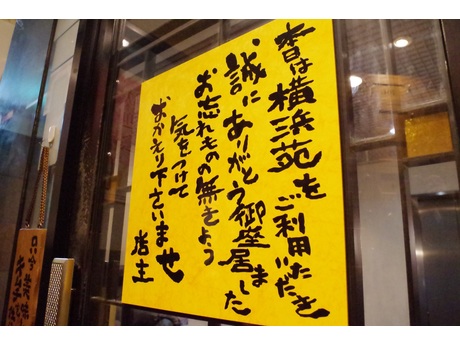 横浜苑をご利用いただき
誠にありがとう御座居ました
お忘れもの無きよう
気をつけて
おかえり下さいませ
店主